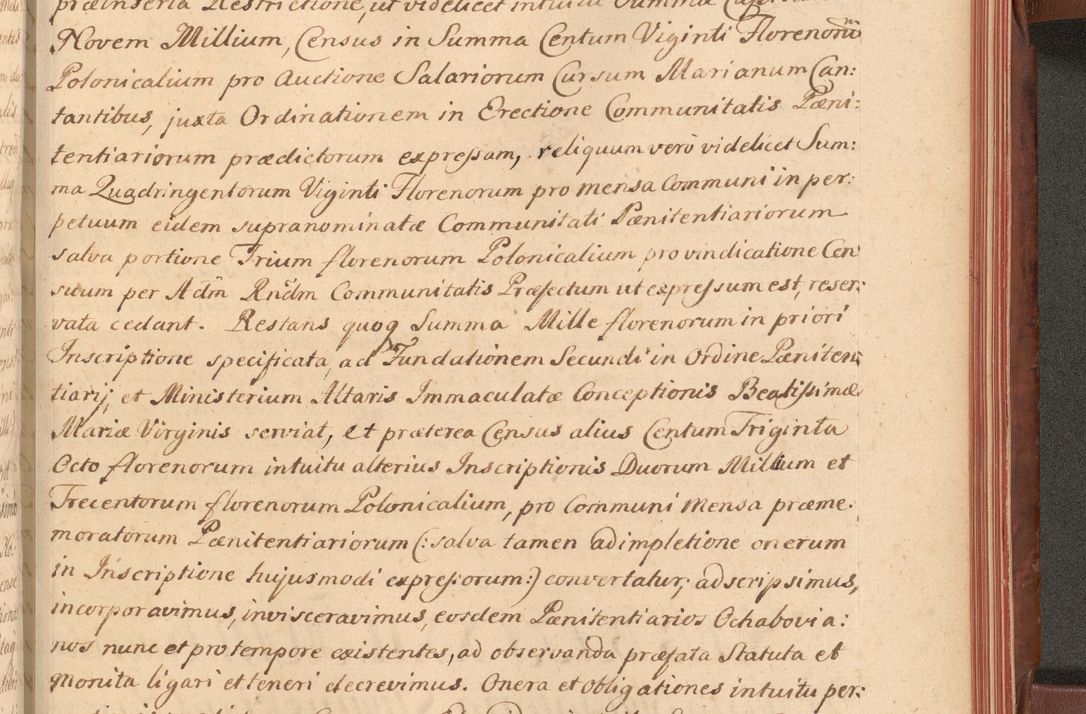 præinserta Restrictione, ut videlicet intuitu Summæ
Novem Millium, Census in Summa Centum Viginti Florenorũm
Polonicalium pro Auctione Salariorum Cursum Marianum Can:
tantibus, juxta Ordinationem in Erectione Communitatis Pæni:
tentiariorum prædictorum expressam, reliquum verò videlicet Sum:
ma Quadringentorum Viginti Florenorum pro mensa Communi in per:
petuum eidem supranominatæ Communitati Pænitentiariorum
salva portione Trium florenorum Polonicalium pro vindicatione Cen
suum per Adm̃ Rñdm Communitatis Præfectum ut expressum est, reser:
vata cedant. Restans quoq Summa Mille florenorum in priori
Inscriptione specificata, ad Fundationem Secundi in Ordine Pæniten:
tiarij, et Ministerium Altaris Immaculatæ Conceptionis Beatissimæ
Mariæ Virginis serviat, et præterea Census alius Centum Triginta
Octo florenorum intuitu alterius Inscriptionis Duorum Millium et
Trecentorum florenorum Polonicalium, pro Communi Mensa præme:
moratorum Pænitentiariorum (: salva tamen adimpletione onerum
in Inscriptione hujusmodi expressorum :) convertatur; adscripsimus,
incorporavimus, invisceravimus, eosdem Pænitentiarios Ochabovia:
nos nunc et pro tempore existentes, ad observanda præfata Statuta et
Monita ligari et teneri decrevimus. Onera et Obligationes intuitu per: